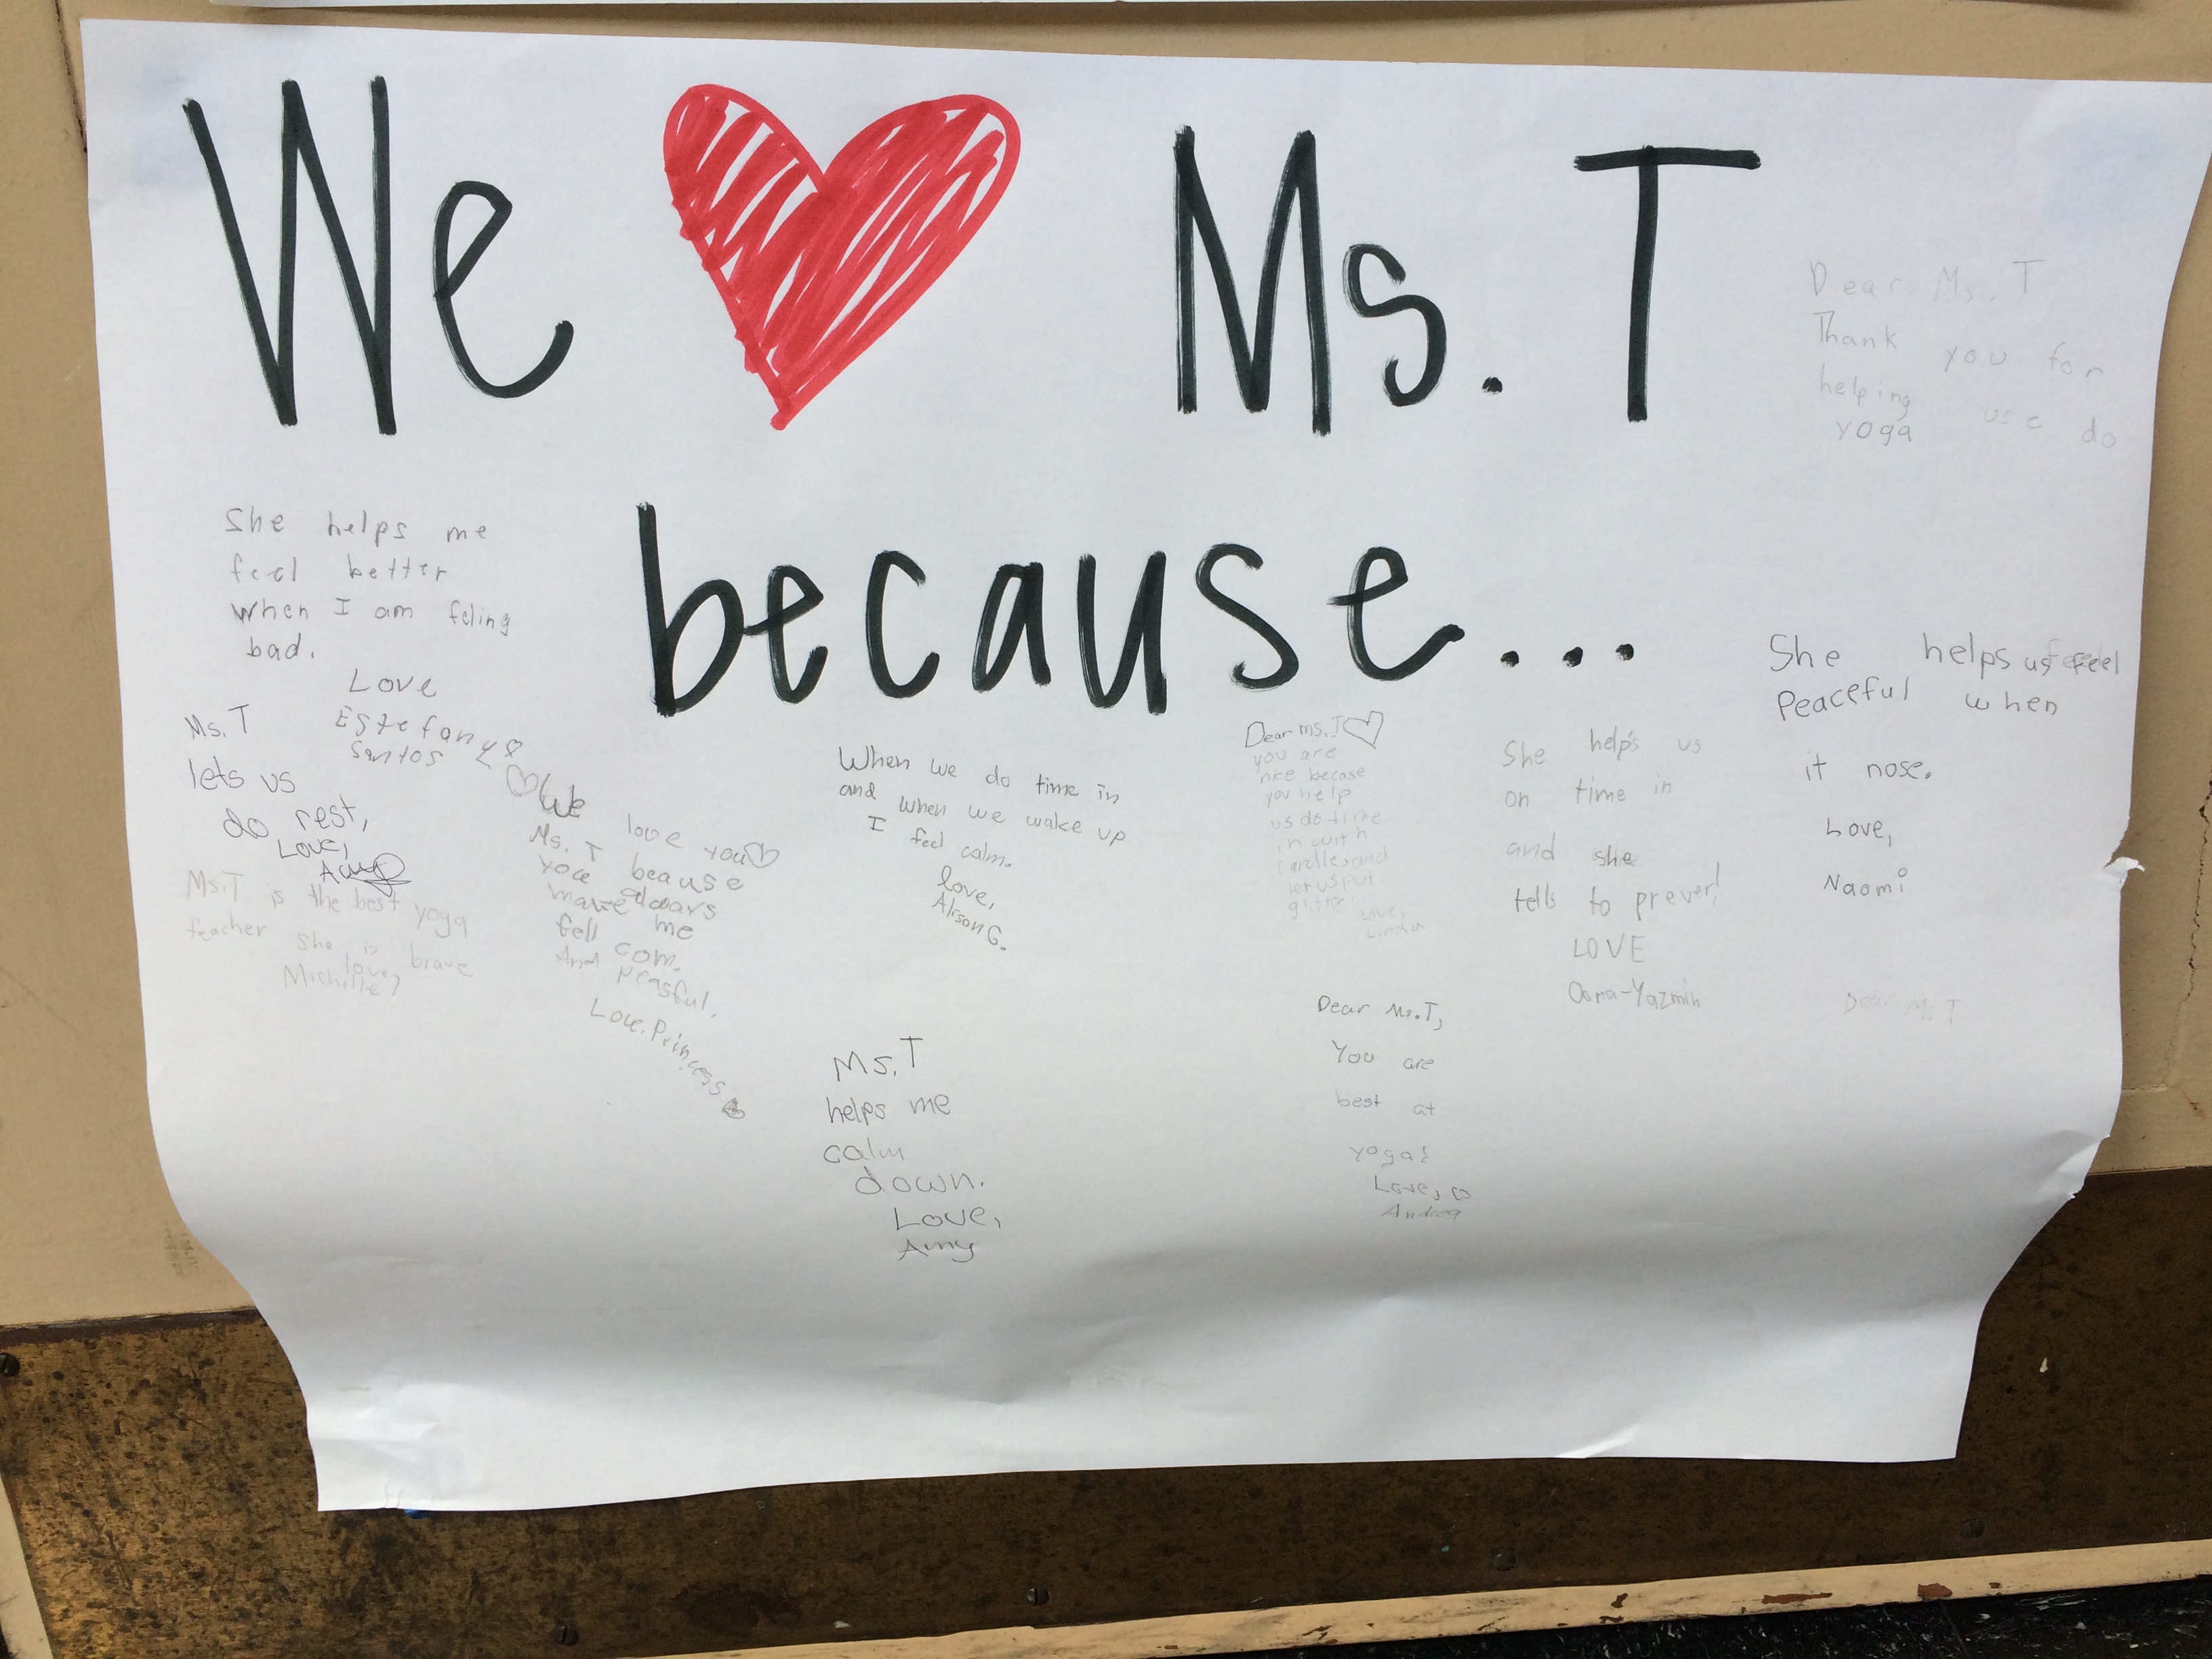 We ♥ Ms. T
because...
Dear Ms. T
Thank you for
helping use do
yoga
She helps me
feel better
when I am feling
bad.
Love
Estefany
Santos
Ms. T
lets us
do rest,
Love,
Amy
Ms.T is the best yoga
teacher she is brave
love,
Michelle
We love you
Ms. T beause
you always
make me
fell com.
And peasful.
Love. Princess
When we do time in
and when we wake up
I feel calm.
love,
Alison G.
Ms. T
helps me
calm
down.
Love,
Amy
Dear ms. T
you are
nice becase
you help
us do time
in with
candles and
let us put
glitter
Love,
Linda
Dear Ms.T,
You are
best at
yoga!
Love,
Andrea
She helps us
on time in
and she
tells to
LOVE
-Yazmin
She helps us feel
Peaceful when
it nose.
Love,
Naomi
Dear Ms T